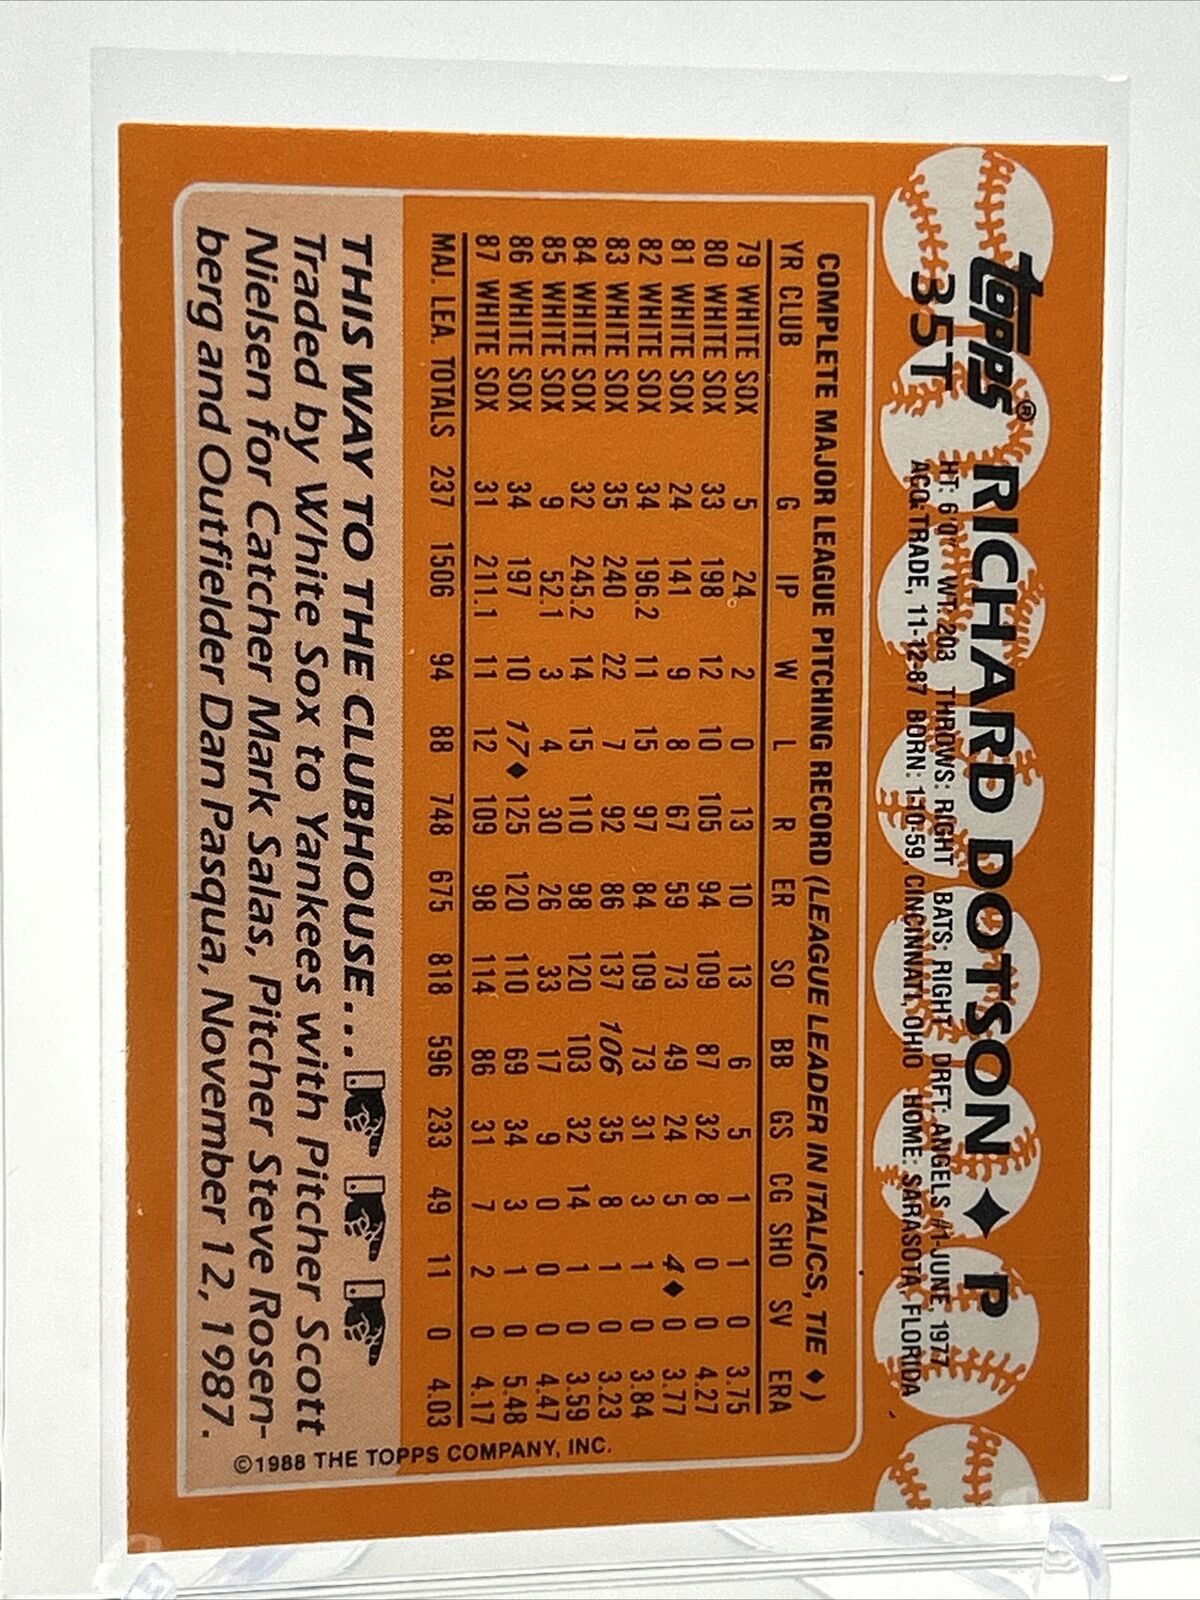 Topps® RICHARD DOTSON ♦ P
35T
HT: 6'0" WT: 203 THROWS: RIGHT BATS: RIGHT DRFT: ANGELS #1-JUNE, 1977
ACQ: TRADE, 11-12-87 BORN: 1-10-59, CINCINNATI, OHIO HOME: SARASOTA, FLORIDA
COMPLETE MAJOR LEAGUE PITCHING RECORD (LEAGUE LEADER IN ITALICS, TIE ♦)
YR CLUB G IP W L R ER SO BB GS CG SHO SV ERA
79 WHITE SOX 5 24 2 0 13 10 13 6 5 1 1 0 3.75
80 WHITE SOX 33 198 12 10 105 94 109 87 32 8 0 0 4.27
81 WHITE SOX 24 141 9 8 67 59 73 49 24 5 4♦ 0 3.77
82 WHITE SOX 34 196.2 11 15 97 84 109 73 31 3 1 0 3.84
83 WHITE SOX 35 240 22 7 92 86 137 106 35 8 1 0 3.23
84 WHITE SOX 32 245.2 14 15 110 98 120 103 32 14 1 0 3.59
85 WHITE SOX 9 52.1 3 4 30 26 33 17 9 0 0 0 4.47
86 WHITE SOX 34 197 10 17♦ 125 120 110 69 34 3 1 0 5.48
87 WHITE SOX 31 211.1 11 12 109 98 114 86 31 7 2 0 4.17
MAJ. LEA. TOTALS 237 1506 94 88 748 675 818 596 233 49 11 0 4.03
THIS WAY TO THE CLUBHOUSE...
Traded by White Sox to Yankees with Pitcher Scott
Nielsen for Catcher Mark Salas, Pitcher Steve Rosen-
berg and Outfielder Dan Pasqua, November 12, 1987.
©1988 THE TOPPS COMPANY, INC.